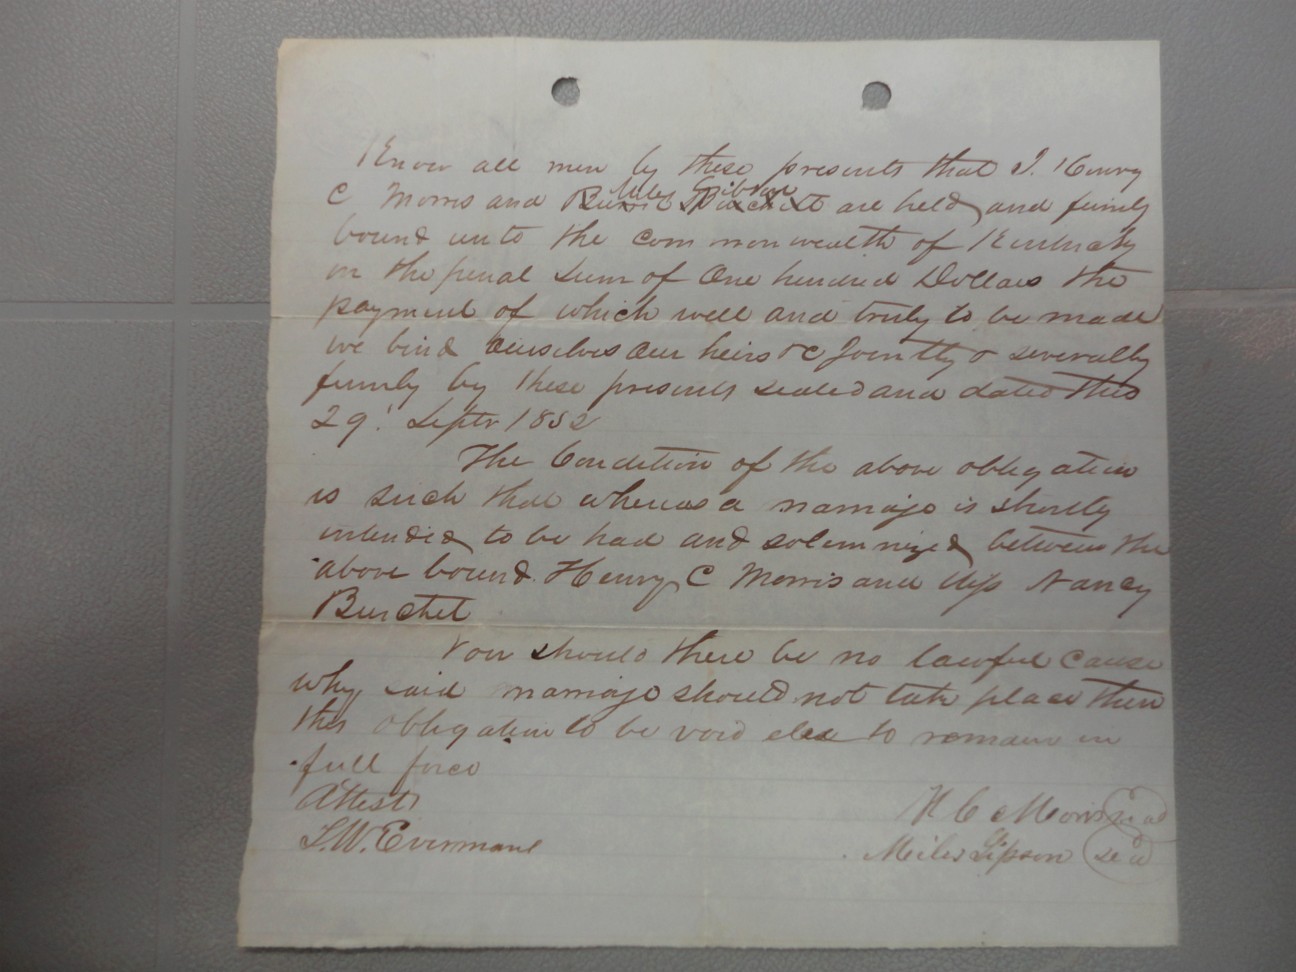 Know all men by these presents that I. Henry
C Morris and Miles Gibson are held and firmly
bound unto the commonwealth of Kentucky
in the penal sum of One hundred Dollars the
payment of which well and truly to be made
we bind ourselves our heirs &c Jointly & severally
firmly by these presents sealed and dated this
29' Septr 1852
The Condition of the above obligation
is such that whereas a marriage is shortly
intended to be had and solemnized between the
above bound Henry C Morris and Miss Nancy
Burchet
Now should there be no lawful cause
why said marriage should not take place then
this obligation to be void else to remain in
full force
Attest
H C Morris seal
Miles Gipson seal